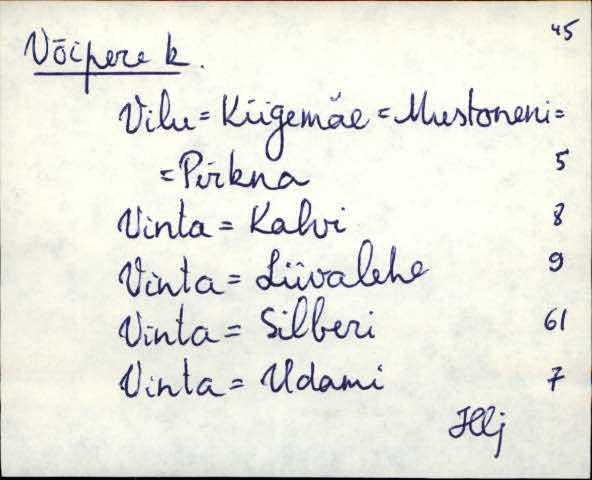 45
Võipere k.
Vilu = Kiigemäe = Mustoneni =
= Pirkna 5
Vinta = Kalvi 8
Vinta = Liivalehe 9
Vinta = Silberi 61
Vinta = Udami 7